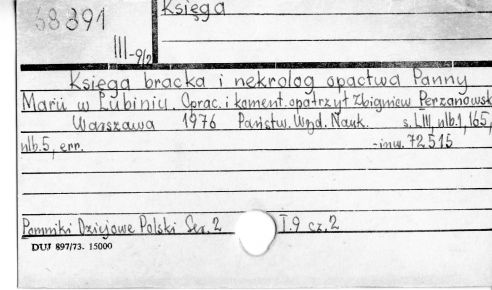 68391
Księga
III-9/2
Księga bracka i nekrolog opactwa Panny
Marii w Lubiniu. Oprac. i koment. opatrzył Zbigniew Perzanowsk
Warszawa 1976 Państw. Wyd. Nauk. s. LIII, nlb.1, 165,
nlb.5, err. -inw. 72515
Pomniki Dziejowe Polski Ser. 2 T.9 cz. 2
DUJ 897/73. 15000